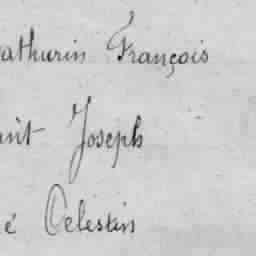 athurin François
int Joseph
é Célestin